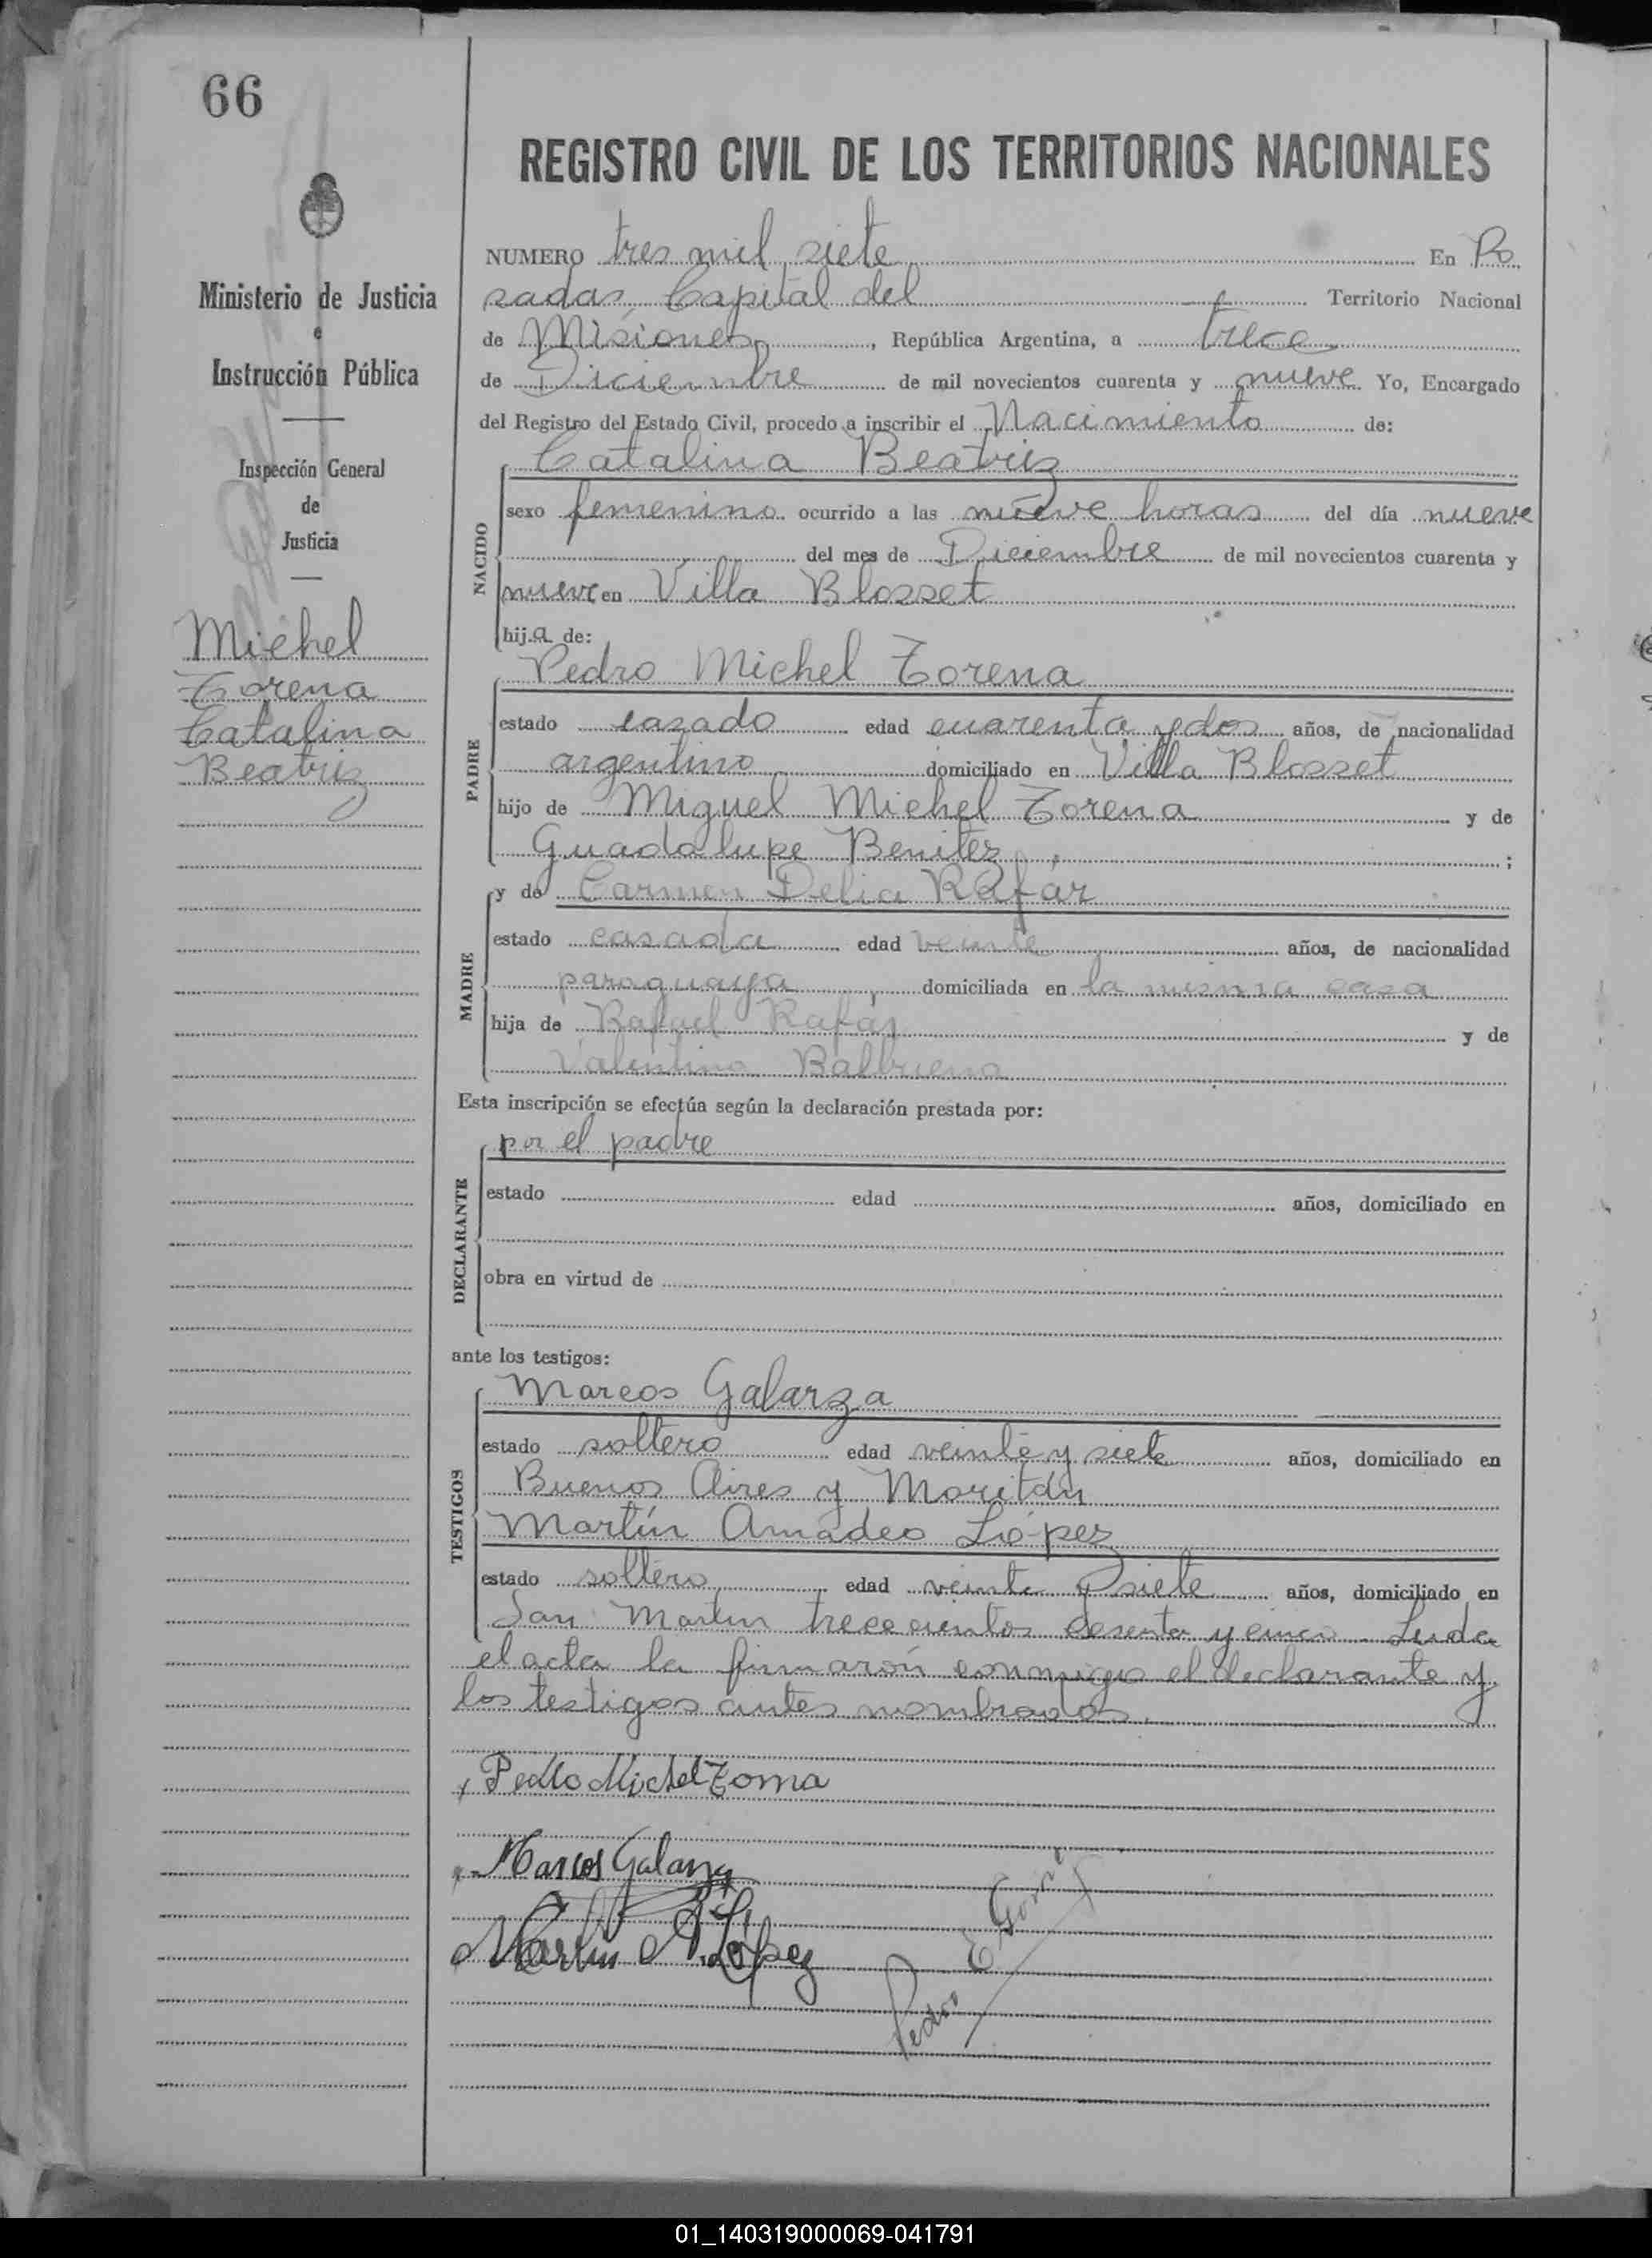 66
REGISTRO CIVIL DE LOS TERRITORIOS NACIONALES
Ministerio de Justicia
e
Instrucción Pública
Inspección General
de
Justicia
Michel
Torena
Catalina
Beatriz
NUMERO tres mil siete En Po
sadas, Capital del Territorio Nacional
de Misiones, República Argentina, a trece
de Diciembre de mil novecientos cuarenta y nueve. Yo, Encargado
del Registro del Estado Civil, procedo a inscribir el Nacimiento de:
Catalina Beatriz
NACIDO
sexo femenino ocurrido a las nueve horas del día nueve
del mes de Diciembre de mil novecientos cuarenta y
nueve en Villa Blosset
hija de:
Pedro Michel Torena
PADRE
estado casado edad cuarenta y dos años, de nacionalidad
argentino domiciliado en Villa Blosset
hijo de Miguel Michel Torena y de
Guadalupe Benitez;
y de Carmen Delia Rafár
MADRE
estado casada edad veinte años, de nacionalidad
paraguaya, domiciliada en la misma casa
hija de Rafael Rafár y de
Valentina Balbuena
Esta inscripción se efectúa según la declaración prestada por:
por el padre
DECLARANTE
estado edad años, domiciliado en
obra en virtud de
ante los testigos:
Marcos Galarza
TESTIGOS
estado soltero edad veinte y siete años, domiciliado en
Buenos Aires y Moritán
Martín Amadeo López
estado soltero edad veinte y siete años, domiciliado en
San Martin trescientos sesenta y cinco. Leida
el acta la firmarón conmigo el declarante y
los testigos antes nombrados.
Pedro Michel Torena
Marcos Galarza
Martin A. López
Pedro E. Goñi
01_140319000069-041791